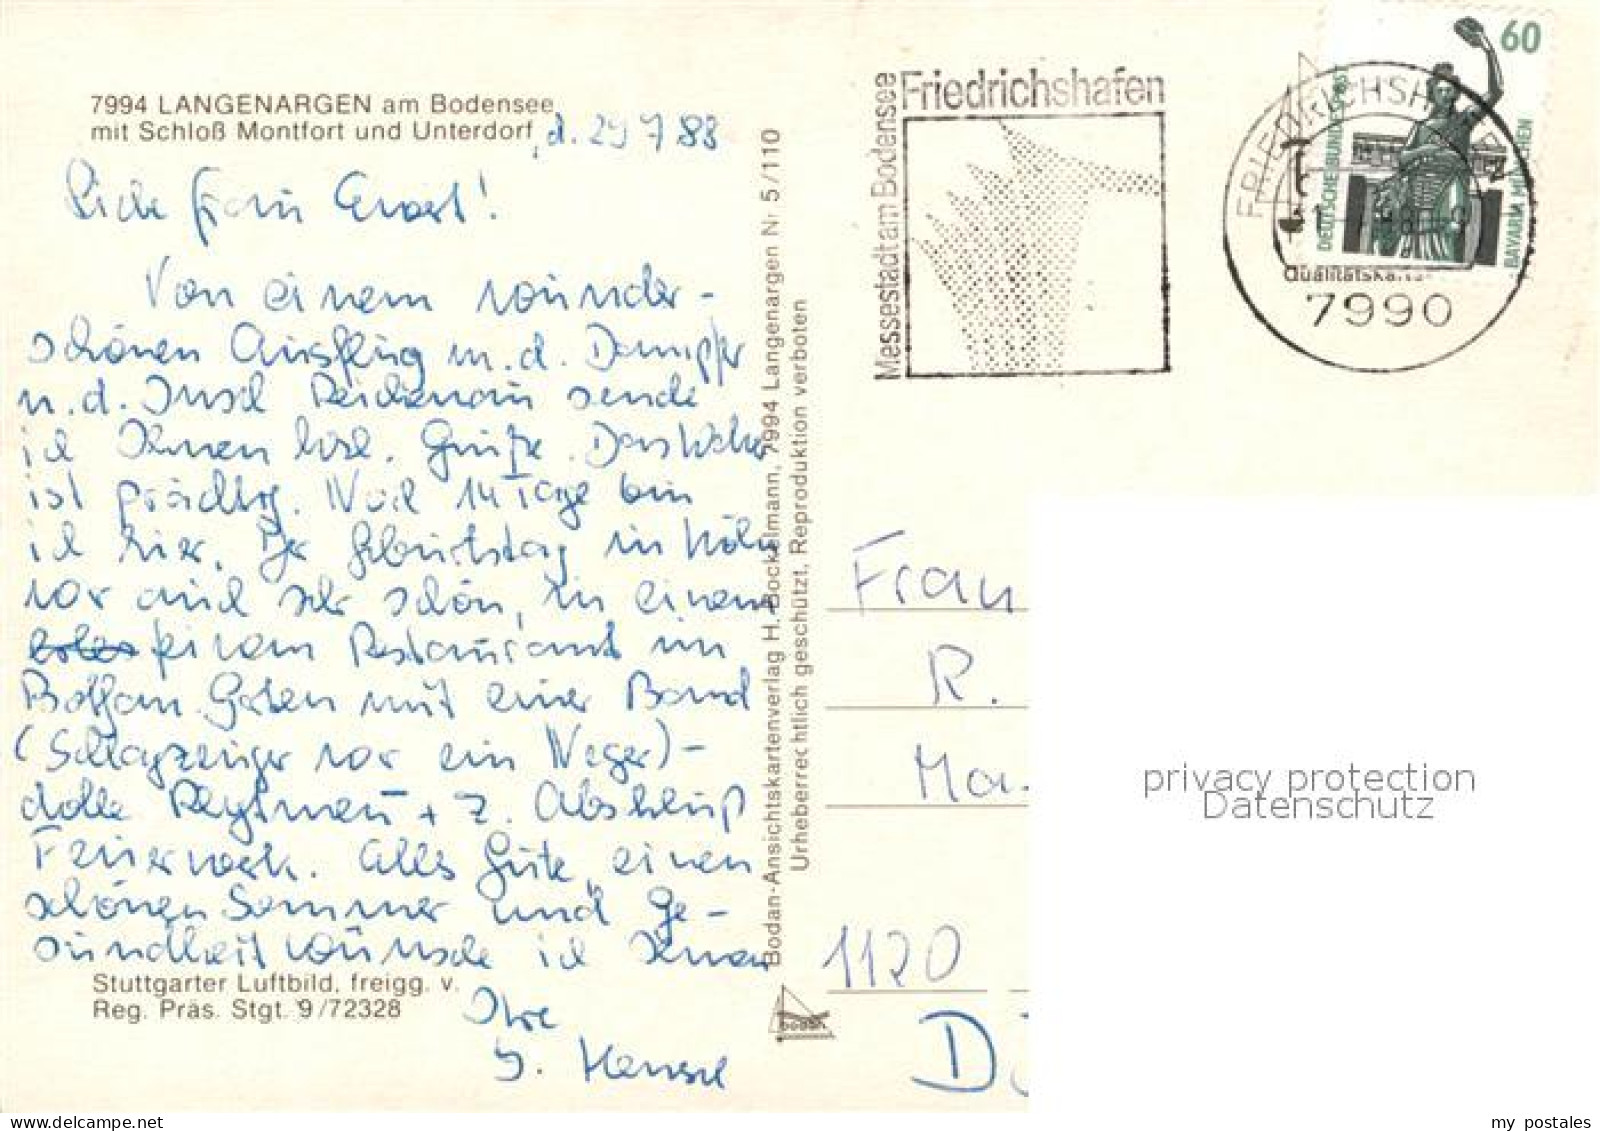 7994 LANGENARGEN am Bodensee
mit Schloß Montfort und Unterdorf
d. 29 7 88
Liebe Frau Ewert!
Von einem wunder-
schönen Ausflug m. d. Dampfer
n. d. Insel Reichenau sende
ich Ihnen herzl. Grüße. Das Wetter
ist prächtig. Noch 14 Tage bin
ich hier. Der Geburtstag in Köln
war auch sehr schön, in einem
feinem Restaurant im
Botan. Garten mit einer Band
(Schlagzeuger war ein Neger) -
dolle Rhytmen + z. Abschluß
Feuerwerk. Alles Gute, einen
schönen Sommer und Ge-
sundheit wünsche ich Ihnen
Ihre
Hensel
Stuttgarter Luftbild, freigg. v.
Reg. Präs. Stgt. 9/72328
Bodan-Ansichtskartenverlag H. Bockelmann, 7994 Langenargen Nr 5/110
Urheberrechtlich geschützt, Reproduktion verboten
bodan
Friedrichshafen
Messestadt am Bodensee
FRIEDRICHSHAFEN
7990
60
DEUTSCHE BUNDESPOST
BAVARIA MÜNCHEN
Qualitätskarte
Frau
R.
Ma
1120
D
privacy protection
Datenschutz
my postales